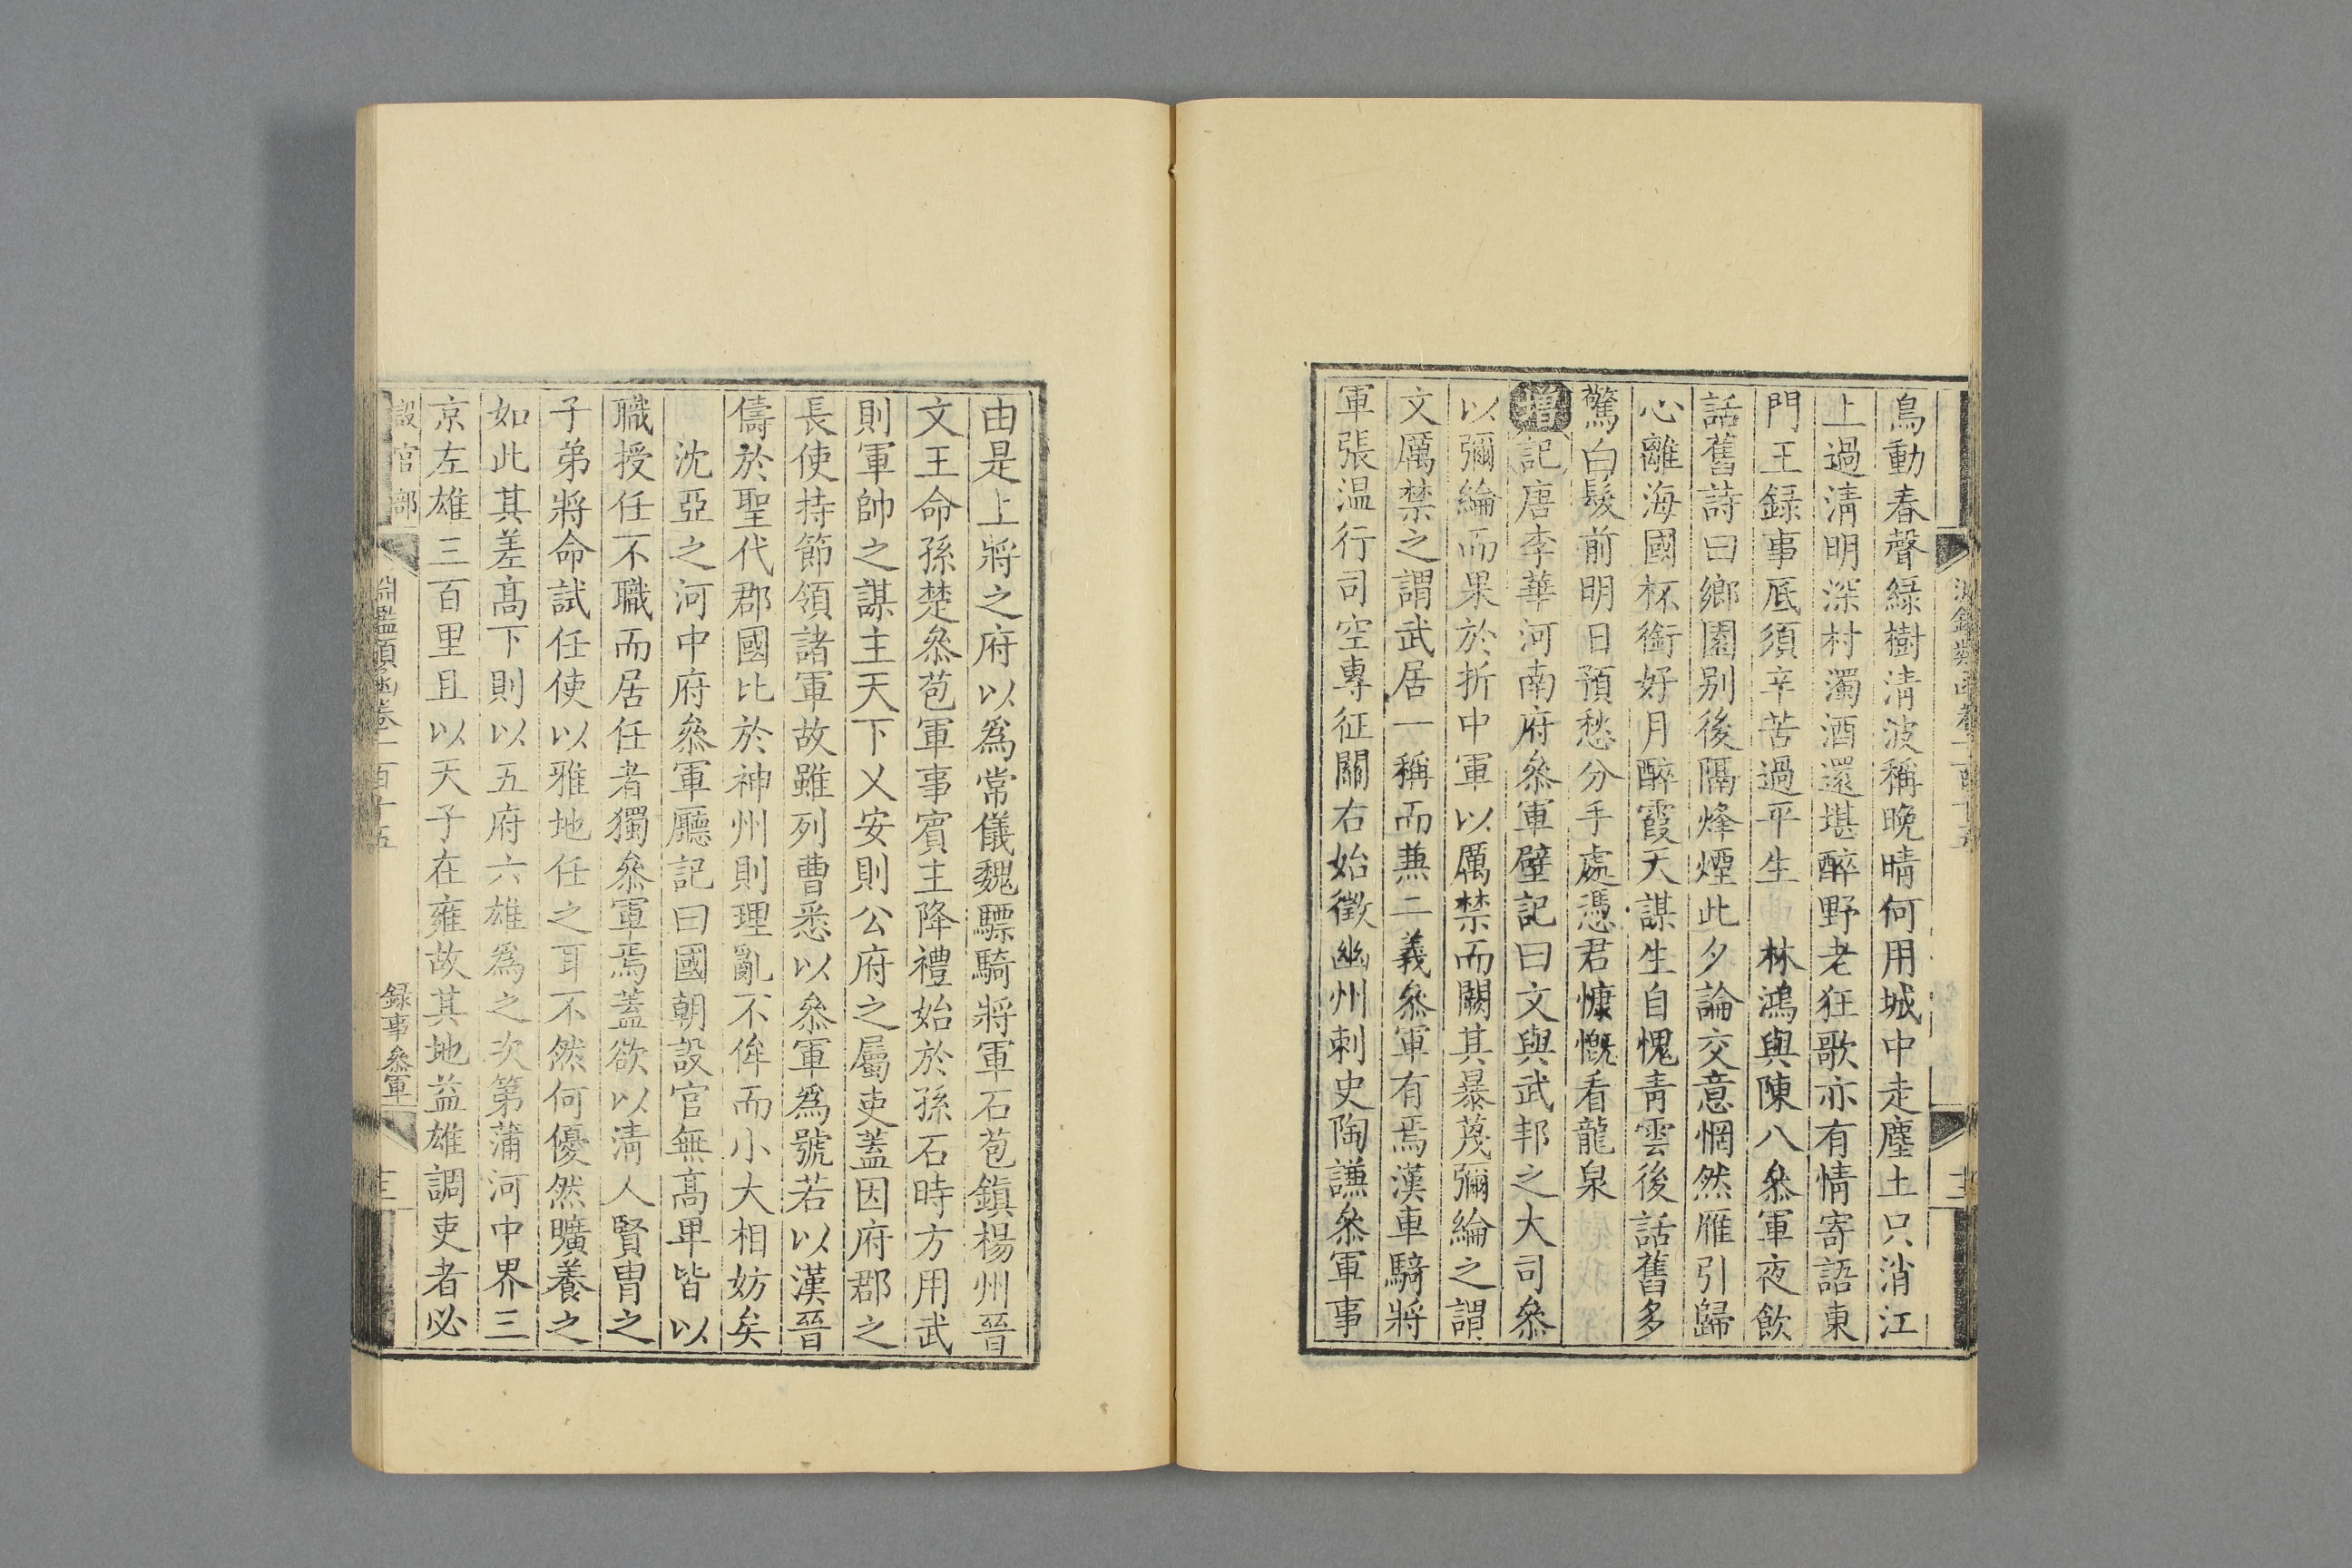 鳥動春聲綠樹淸波稱晚晴何用城中走塵土只消江
上過淸明深村濁酒還堪醉野老狂歌亦有情寄語東
門王録事底須辛苦過平生 林鴻與陳八叅軍夜飲
話舊詩曰鄉園别後隔烽煙此夕論交意惘然雁引歸
心離海國杯銜好月醉霞天謀生自愧靑雲後話舊多
驚白髮前明日預愁分手處憑君慷慨看龍泉
增記唐李華河南府叅軍壁記曰文與武邦之大司叅
以彌綸而果於折中軍以厲禁而闕其暴蔑彌綸之謂
文厲禁之謂武居一稱而兼二義叅軍有焉漢車騎將
軍張温行司空專征關右始徵幽州刺史陶謙叅軍事
由是上將之府以爲常儀魏驃騎將軍石苞鎭楊州晉
文王命孫楚叅苞軍事賓主降禮始於孫石時方用武
則軍帥之謀主天下乂安則公府之屬吏蓋因府郡之
長使持節領諸軍故雖列曹悉以叅軍爲號若以漢晉
儔於聖代郡國比於神州則理亂不侔而小大相妨矣
沈亞之河中府叅軍廳記曰國朝設官無高卑皆以
職授任不職而居任者獨叅軍焉蓋欲以淸人賢胄之
子弟將命試任使以雅地任之耳不然何優然曠養之
如此其差高下則以五府六雄爲之次第蒲河中界三
京左雄三百里且以天子在雍故其地益雄調吏者必
設官部 淵鑑類函卷一百十五 録事叅軍 十三